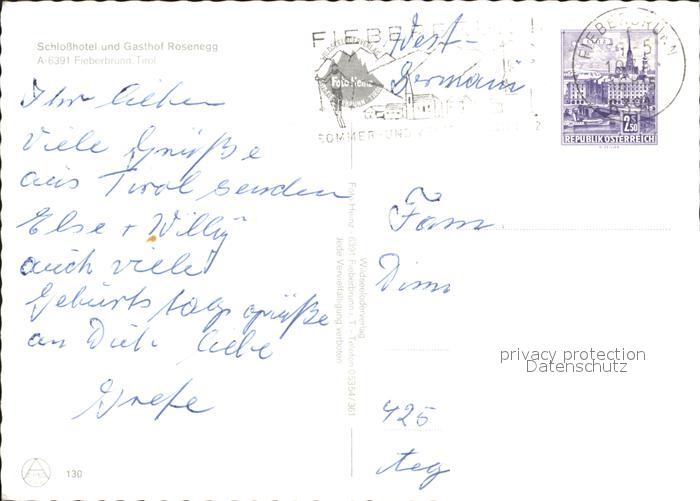 Schloßhotel und Gasthof Rosenegg
A-6391 Fieberbrunn, Tirol
FIEBERBRUNN
Foto Heinz
SOMMER-UND
FIEBERBRUNN
2.50
REPUBLIK ÖSTERREICH
West-
Germani
Ihr lieben
Viele Grüße
aus Tirol senden
Else + Willy
auch viele
Geburtstagsgrüße
an Dich liebe
Grete
Fam.
425
Wildseeloderverlag
Foto Heinz 6391 Fieberbrunn i. T. - Telefon 05354/361
Jede Vervielfältigung verboten
privacy protection
Datenschutz
130